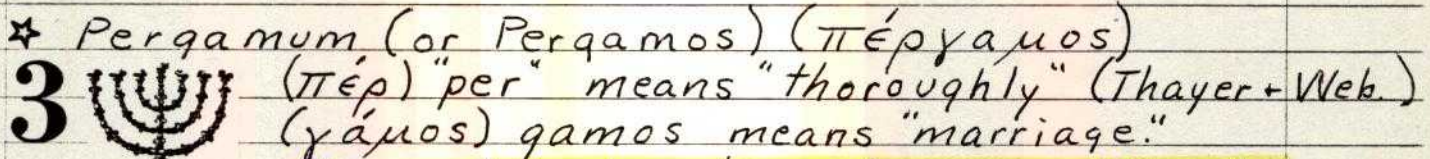 ☆ Pergamum (or Pergamos) (πέργαμος)
3 (πέρ) "per" means "thoroughly" (Thayer + Web.)
(γάμος) gamos means "marriage."